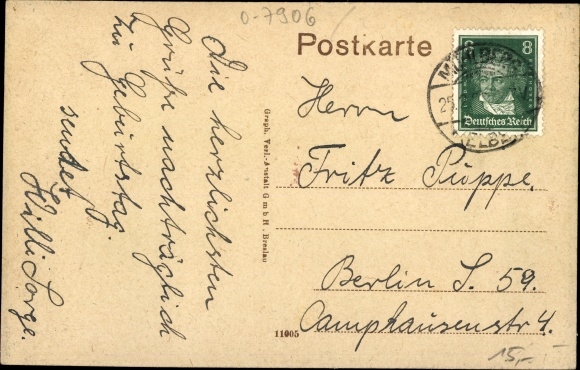 0-7906
Postkarte
8 8
Deutsches Reich
Die herzlichsten
Grüße nachträglich
zu Geburtstag.
sendet
Willi Sorge.
Graph. Verl.-Anstalt G m b H, Breslau
Herrn
Fritz Puppe.
Berlin S. 59.
Camphausenstr 4.
11005
15,-